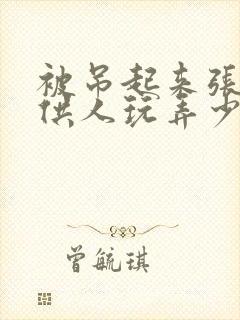 被吊起来張
供人玩弄少
曾毓琪